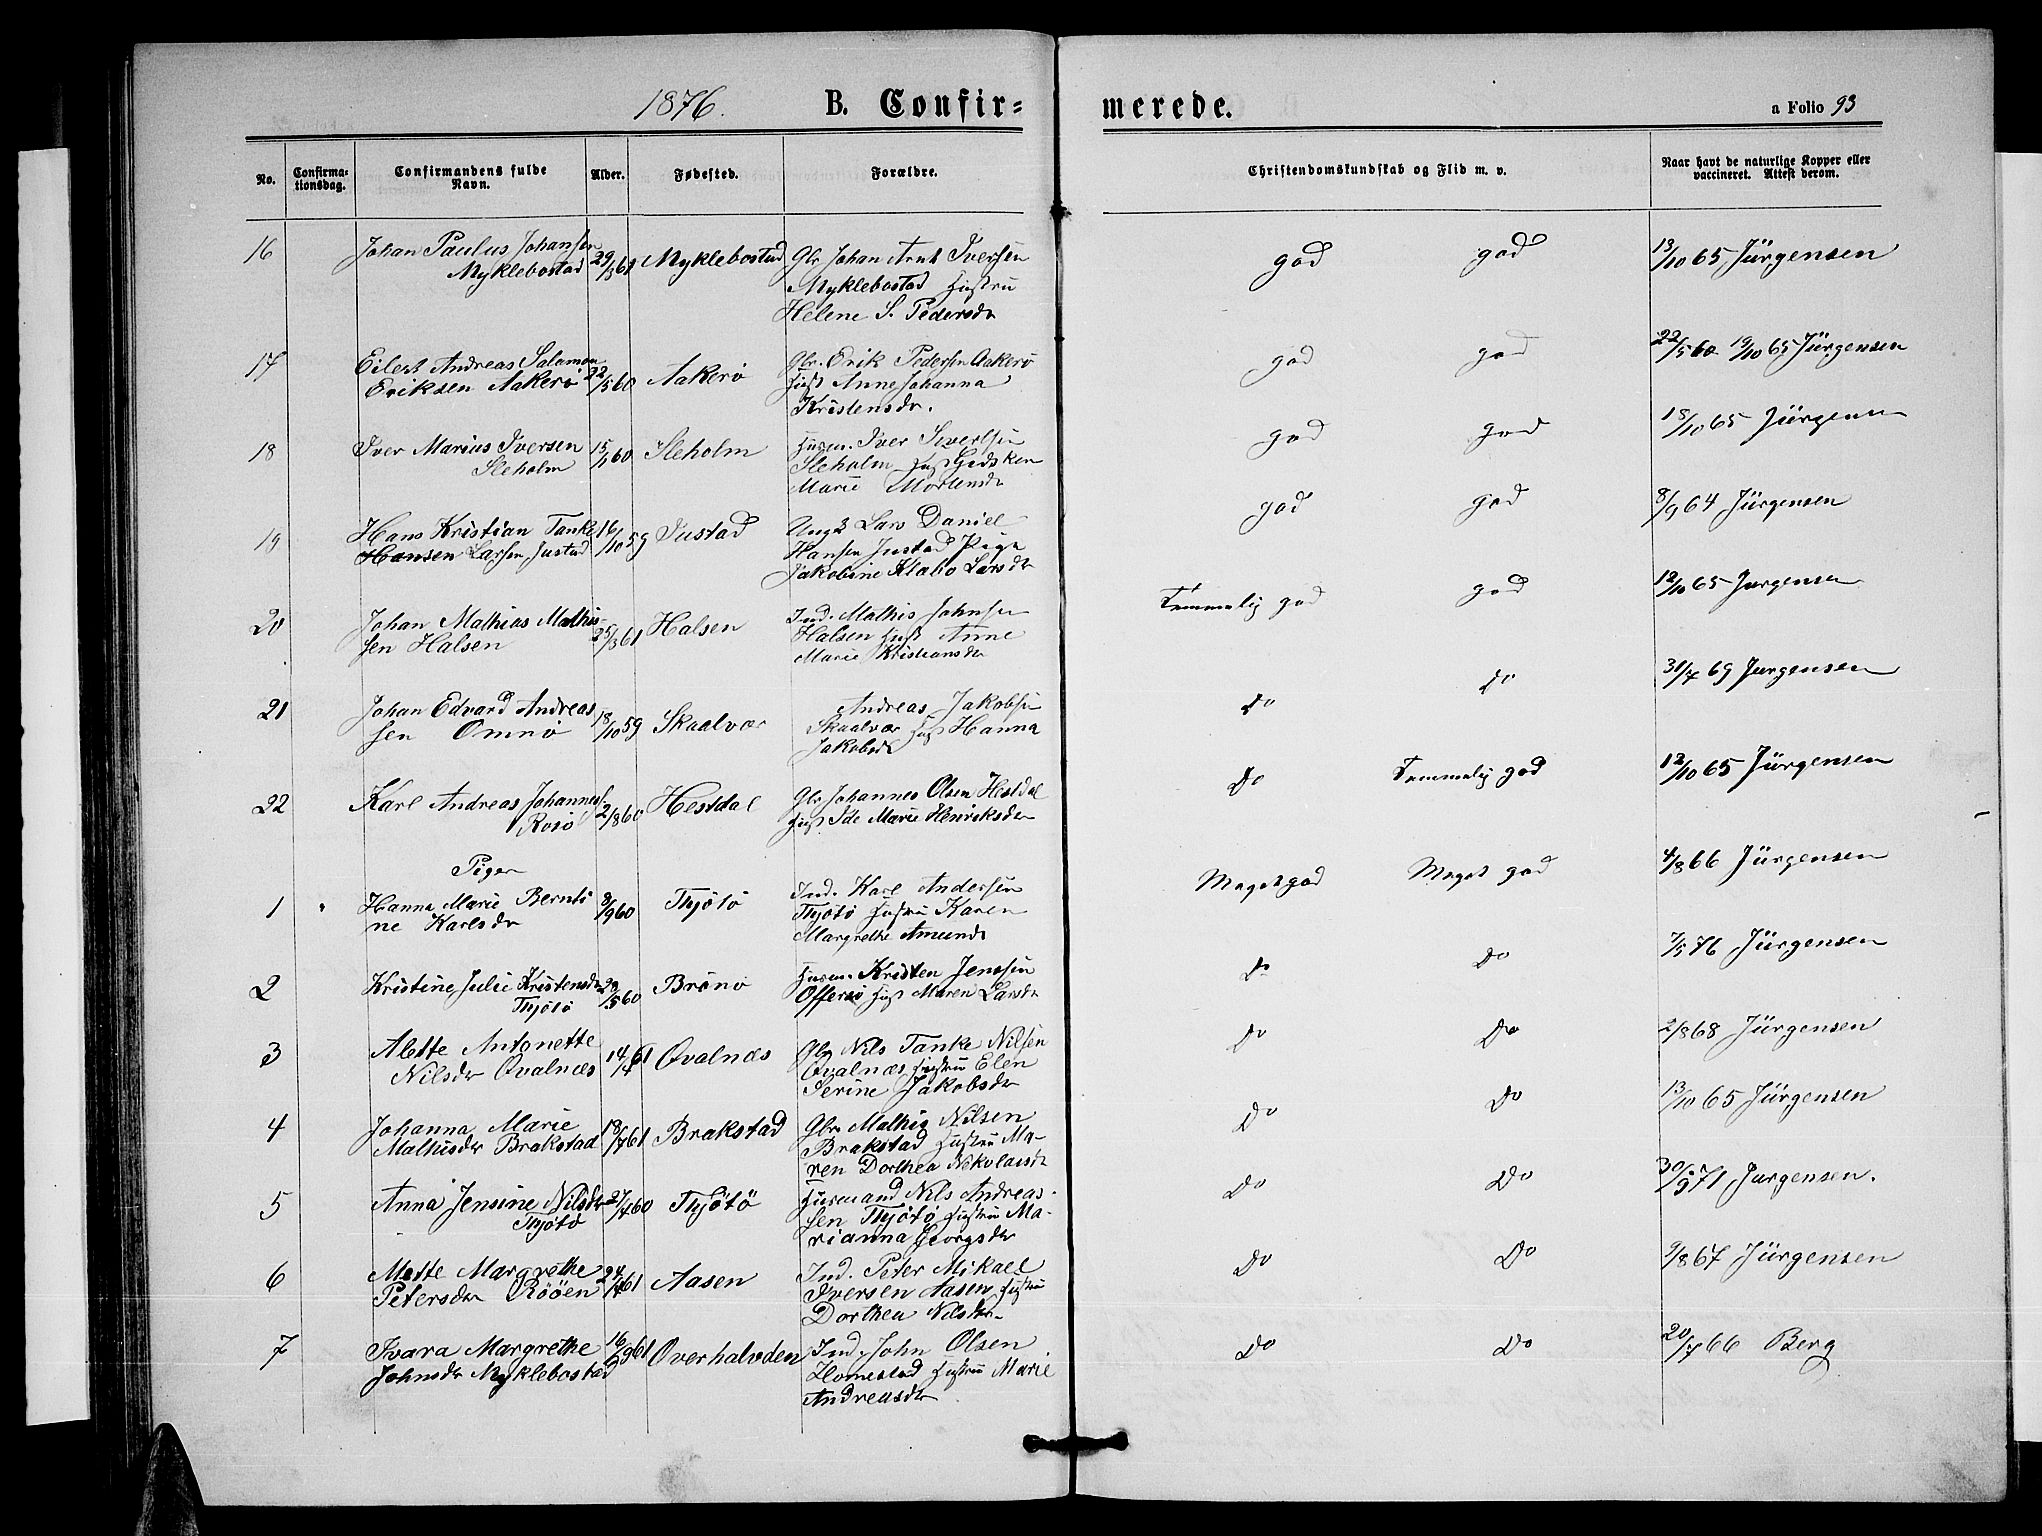 1876. B. Confir= merede. a Folio 93
No. Confirma-tionsdag. Confirmandens fulde Navn. Alder. Fødested. Forældre. Christendomskundskab og Flid m. v. Naar havt de naturlige Kopper eller vaccineret. Attest derom.
16 Johan Paulus Johansen 29/3 61 Myklebostad Gbr Johan Arnt Iversen god god 13/10 65 Jürgensen
Myklebostad Myklebostad Hustru
Helene S. Pedersdr
17 Eilert Andreas Salamon 22/5 60 Aakerö Gbr. Erik Pedersen Aakerö god god 22/5 60 19/10 65 Jürgensen
Eriksen Aakerö Hust Anne Johanna
Kristensdr.
18 Iver Marius Iversen 15/1 60 Sleholm Husm. Iver Sivertsen god god 18/10 65 Jürgensen
Sleholm Sleholm Hust Gidsken
Marie Mortensdr
19 Hans Kristian Tanke 16/10 59 Justad Ungk Lars Daniel god god 8/9 64 Jürgensen
Hansen Larsen Justad Hansen Justad Pige
Jakobine Klabo Larsdr
20 Johan Mathias Mathis- 25/3 61 Halsen Ind. Mathis Johnsen Temmelig god god 12/10 65 Jurgensen
sen Halsen Halsen Hust Anne
Marie Kristiansdr
21 Johan Edvard Andreas 18/10 59 Skaalvær Andreas Jakobsen Do Do 31/7 69 Jurgensen
sen Omnö Skaalvær Hust Hanna
Jakobsdr
22 Karl Andreas Johannes 2/8 60 Hestdal Gbr Johannes Olsen Hestdal Do Temmelig god 12/10 65 Jürgensen
Rosö Hust Ide Marie Henriksdr
Piger
1 Hanna Marie Bernti 8/9 60 Thjötö Ind. Karl Andersen Meget god Meget god 4/8 66 Jürgensen
ne Karlsdr Thjötö Hustru Karen
Margrethe Amundsdr
2 Kristine Julie Kristensdr 29/5 60 Brönö Husm. Kristen Jenssen Do Do 7/5 76 Jürgensen
Thjötö Offersö Hust Maren Larsdr
3 Alette Antonette 14/4 61 Qvalnæs Gbr Nils Tanke Nilsen Do Do 2/8 68 Jürgensen
Nilsdr Qvalnæs Qvalnæs Hustru Elen
Serine Jakobsdr
4 Johanna Marie 18/7 61 Brakstad Gbr Mathis Nilsen Do Do 13/10 65 Jürgensen
Mathisdr Brakstad Brakstad Hustru Ma-
ren Dorthea Nikolaisdr
5 Anna Jensine Nilsdr 27/4 60 Thjötö Husmand Nils Andreas- Do Do 30/9 71 Jurgensen.
Thjötö sen Thjötö Hustru Ma-
rianna Georgsdr
6 Mette Margrethe 24/4 61 Aasen Ind. Peter Mikael Do Do 9/8 67 Jürgensen
Petersdr Rööen Iversen Aasen Hustru
Dorthea Nilsdr
7 Ivara Margrethe 16/9 61 Overhalvden Ind. John Olsen Do Do 20/7 66 Berg
Johnsdr Myklebostad Homestad Hustru Marie
Andreasdr